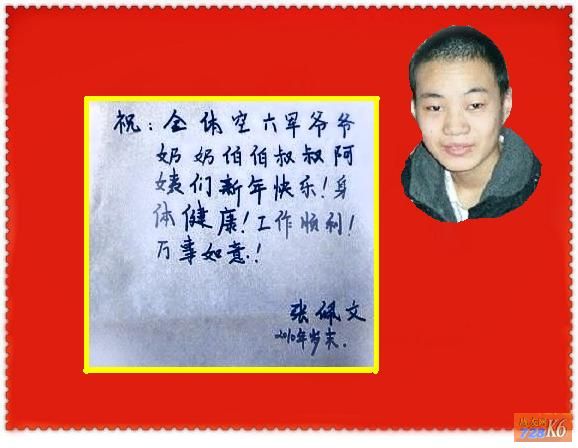 祝：全体空六军爷爷
奶奶伯伯叔叔阿
姨们新年快乐！身
体健康！工作顺利！
万事如意！
张佩文
2010年岁末.
728K6